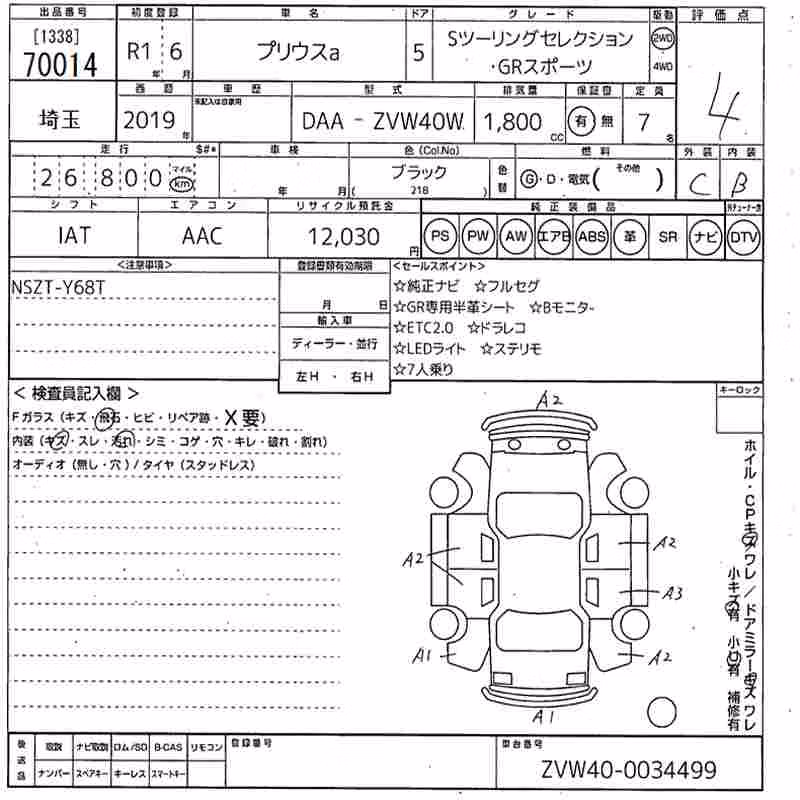 出品番号 初度登録 車名 ドア グレード 駆動 評価点
[1338] 70014 R1年 6月 プリウスa 5 Sツーリングセレクション 2WD 4
・GRスポーツ 4WD
西暦 車歴 型式 排気量 保証書 定員
未記入は自家用
埼玉 2019年 DAA - ZVW40W 1,800CC 有 無 7名
走行 $#* 車検 色(Col.No) 燃料 外装 内装
26800 マイル km 年 月 ブラック (218) 色替 G・D・電気(その他) C B
シフト エアコン リサイクル預託金 純正装備品
IAT AAC 12,030円 PS PW AW エアB ABS 革 SR ナビ DTV
<注意事項> 登録書類有効期限 <セールスポイント>
NSZT-Y68T
月 日
☆純正ナビ ☆フルセグ
☆GR専用半革シート ☆Bモニター
輸入車
☆ETC2.0 ☆ドラレコ
ディーラー・並行
☆LEDライト ☆ステリモ
左H ・ 右H
☆7人乗り
< 検査員記入欄 >
Fガラス (キズ・飛石・ヒビ・リペア跡・X要)
内装 (キズ・スレ・汚れ・シミ・コゲ・穴・キレ・破れ・割れ)
オーディオ (無し・穴) / タイヤ (スタッドレス)
キーロック
A2
A2
A2
A3
A1
A2
A1
ホイル・CPキズワレ/ドアミラーキズワレ
小キズ有 小凹有 補修有
後送品 取説 ナビ取説 ロム/SD B-CAS リモコン 登録番号 車台番号
ナンバー スペアキー キーレス スマートキー ZVW40-0034499